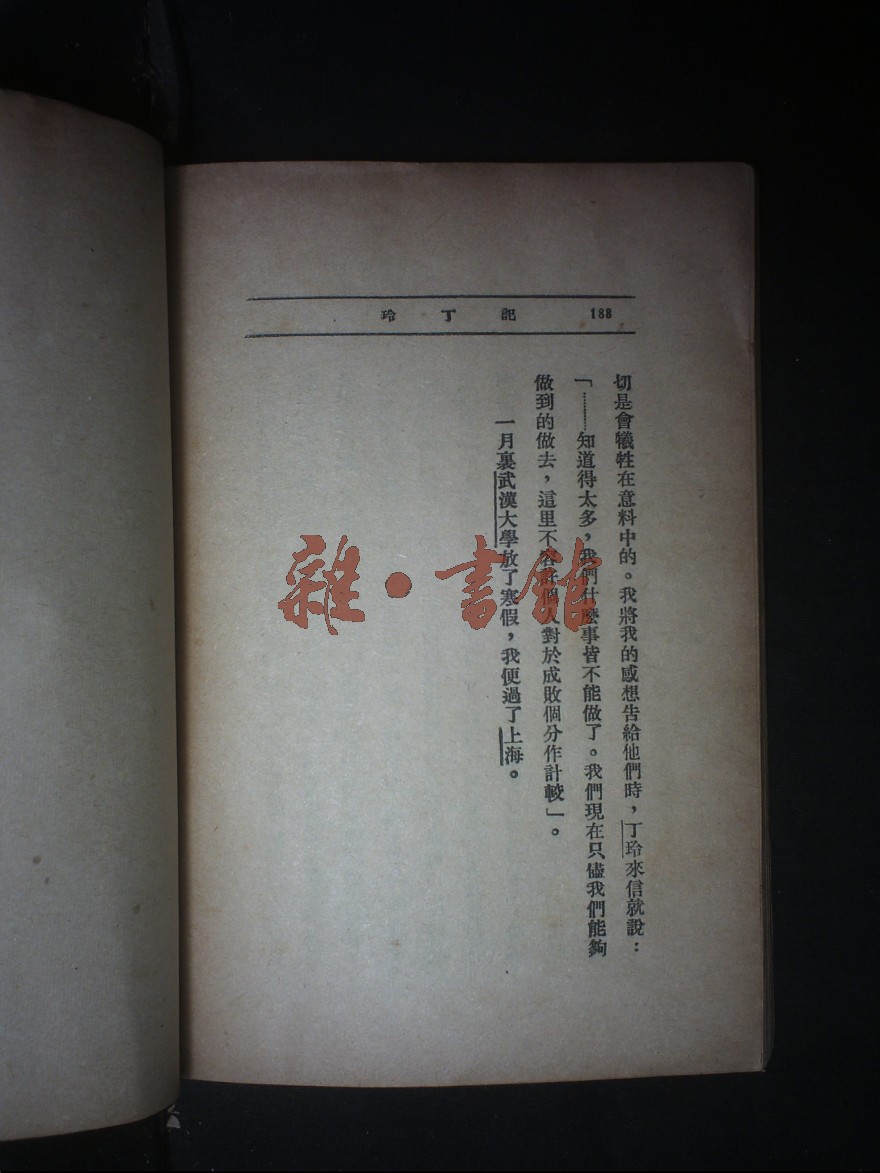 記丁玲 188
切是會犧牲在意料中的。我將我的感想告給他們時，丁玲來信就說：
「………知道得太多，我們什麼事皆不能做了。我們現在只儘我們能夠
做到的做去，這里不容許個人對於成敗個分作計較」。
一月裏武漢大學放了寒假，我便過了上海。
雜·書館